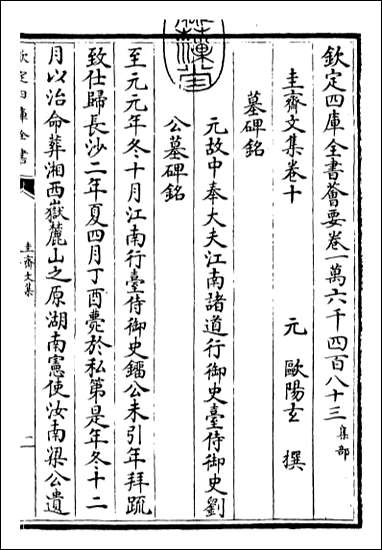 欽定四庫全書薈要卷一萬六千四百八十三集部
圭齋文集卷十
元歐陽玄撰
墓碑銘
元故中奉大夫江南諸道行御史臺侍御史劉
公墓碑銘
至元元年冬十月江南行臺侍御史鐂公未引年拜疏
致仕歸長沙二年夏四月丁酉薨於私第是年冬十二
月以治命葬湘西嶽麓山之原湖南憲使汝南梁公遺
欽定四庫全書
圭齋文集